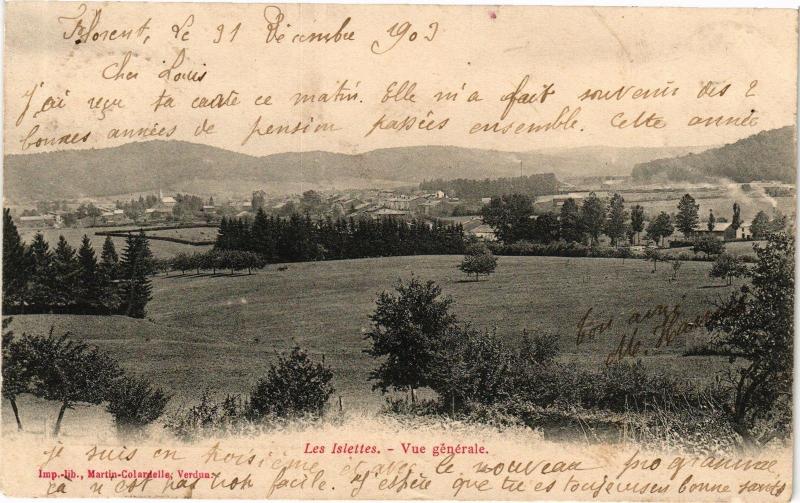 Florent, Le 31 Décembre 1903
Cher Louis
j'ai reçu ta carte ce matin. Elle m'a fait souvenir des 2
bonnes années de pension passées ensemble. Cette année
ton ami
M.
Les Islettes. - Vue générale.
je suis en troisième et avec le nouveau programme
Imp.-lib., Martin-Colardelle, Verdun.
ça n'est pas non facile. J'espère que tu es toujours en bonne santé